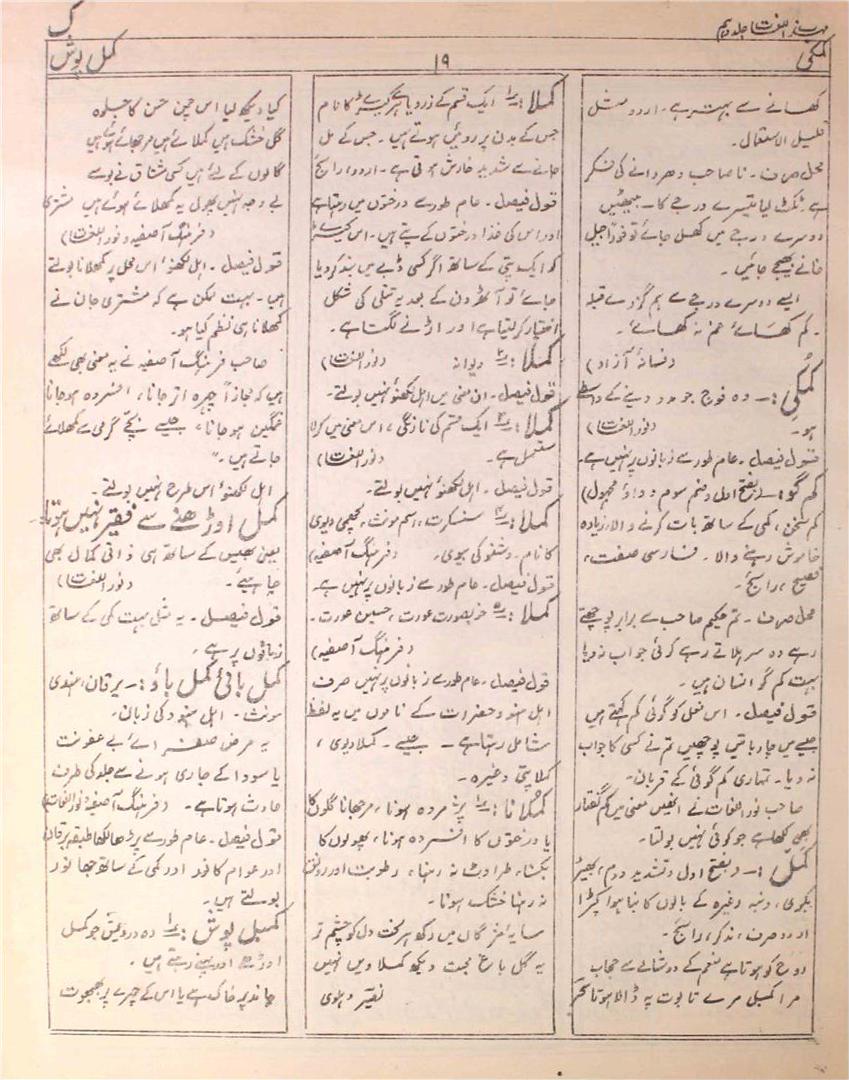 مہذب اللغات جلد دہم
ک
کمکی
۱۹
کمل پوش
کھانے سے بہتر ہے۔ اردو مثل
قلیل الاستعمال۔
محل صرف۔ نا صاحب دھردانے کی فکر
ہے ٹکٹ لیا تیسرے درجے کا۔ بیٹھیں
دوسرے درجے میں کھل جائے تو فوراً جیل
خانے بھیجے جائیں۔
ایسے دوسرے درجے سے ہم گزرے قبلہ
۔ کم کھائے غم نہ کھائے۔
(فسانۂ آزاد)
کمکی :۔ وہ فوج جو مدد دینے کے واسطے
ہو۔ (نور اللغات)
قول فیصل۔ عام طور سے زبانوں پر نہیں ہے۔
کم گو :۔ (بفتح اول وضم سوم و واؤ مجہول)
کم سخن، کمی کے ساتھ بات کرنے والا، زیادہ
خاموش رہنے والا۔ فارسی صفت،
فصیح، رائج۔
محل صرف۔ تم حکیم صاحب سے برابر پوچھتے
رہے وہ سر ہلاتے رہے کوئی جواب نہ دیا
بہت کم گو انسان ہیں۔
قول فیصل۔ اس فعل کو گوئی کم کہتے ہیں
جیسے میں چار باتیں پوچھیں تم نے کسی کا جواب
نہ دیا۔ تمہاری کم گوئی کے قربان۔
صاحب نور اللغات نے انھیں معنی میں کم گفتار
بھی لکھا ہے جو کوئی نہیں بولتا۔
کمل :۔ (بفتح اول و تشدید دوم) بھیڑ
بکری، دنبہ وغیرہ کے بالوں کا بنا ہوا کپڑا
اردو صرف، مذکر، رائج۔
روح کو ہوتا ہے منعم کے دوشالے سے حجاب
مرا کمبل مرے تابوت پہ ڈالا ہوتا سحر
کملا :۱؎ ایک قسم کے زرد یا ہرے کیڑے کا نام
جس کے بدن پر روئیں ہوتے ہیں۔ جس کے مل
جانے سے شدید خارش ہوتی ہے۔ اردو، رائج
قول فیصل۔ عام طور سے درختوں میں رہتا ہے
اور اس کی غذا درختوں کے پتے ہیں۔ اس کیڑے
کو ایک پتی کے ساتھ اگر کسی ڈبے میں بند کر دیا
جائے تو آٹھ دن کے بعد یہ تتلی کی شکل
اختیار کر لیتا ہے اور اڑنے لگتا ہے۔
کملا :۲؎ دیوانہ (نور اللغات)
قول فیصل۔ ان معنی میں اہل لکھنؤ نہیں بولتے۔
کملا :۳؎ ایک قسم کی نارنگی، اس معنی میں کولا
مستعمل ہے۔ (نور اللغات)
قول فیصل۔ اہل لکھنؤ نہیں بولتے۔
کملا :۴؎ سنسکرت، اسم مونث، لچھمی دیوی
کا نام۔ وشنو کی بیوی۔ (فرہنگ آصفیہ)
قول فیصل۔ عام طور سے زبانوں پر نہیں ہے۔
کملا :۵؎ خوبصورت عورت، حسین عورت۔
(فرہنگ آصفیہ)
قول فیصل۔ عام طور سے زبانوں پر نہیں صرف
اہل ہنود حضرات کے ناموں میں یہ لفظ
شامل رہتا ہے۔ جیسے۔ کملا دیوی،
کملا پتی وغیرہ۔
کملانا :۱؎ پژمردہ ہونا، مرجھانا گلوں کا
یا درختوں کا افسردہ ہونا، پھولوں کا
بکسنا، طراوت نہ رہنا، رطوبت اور رونق
نہ رہنا خشک ہونا۔
سایہ مژگاں میں رکھ ہر لخت دل کو چشم تر
یہ گل باغ محبت دیکھ کملا ویں نہیں
نصیر دہلوی
کیا دیکھ لیا اس چمن حسن کا جلوہ
گل خشک ہیں کملائے ہیں مرجھائے ہوئے ہیں
گالوں کے لیے ہیں کسی مشاق نے بوسے
بے وجہ نہیں پھول یہ کمھلائے ہوئے ہیں مشتری
(فرہنگ آصفیہ و نور اللغات)
قول فیصل۔ اہل لکھنؤ اس محل پر کمھلانا بولتے
ہیں۔ بہت ممکن ہے کہ مشتری جان نے
کمھلانا ہی نظم کیا ہو۔
صاحب فرہنگ آصفیہ نے یہ معنی بھی لکھے
ہیں کہ مجازاً چہرہ اتر جانا، افسردہ ہو جانا
غمگین ہو جانا، جیسے بچے گرمی سے کمھلائے
جاتے ہیں۔"
اہل لکھنؤ اس طرح نہیں بولتے۔
کمل اوڑھنے سے فقیر نہیں ہوتا۔
یعنی بھیس کے ساتھ ہی ذاتی کمال بھی
چاہیے۔ (نور اللغات)
قول فیصل۔ یہ مثل بہت کمی کے ساتھ
زبانوں پر ہے۔
کمل بائی کمل باؤ :۔ یرقان، ہندی
مونث۔ اہل ہنود کی زبان۔
یہ مرض صفرائے بے عفونت
یا سودا کے جاری ہونے سے جلد کی طرف
حادث ہوتا ہے۔ (فرہنگ آصفیہ و نور اللغات)
قول فیصل۔ عام طور سے پڑھا لکھا طبقہ یرقان
اور عوام کانور اور کمی کے ساتھ جھانور
بولتے ہیں۔
کمبل پوش :۱؎ وہ درویش جو کمل
اوڑھے اور پہنے رہتے ہیں۔
چاند پر خاک ہے یا اس کے چہرے پر بھبھوت